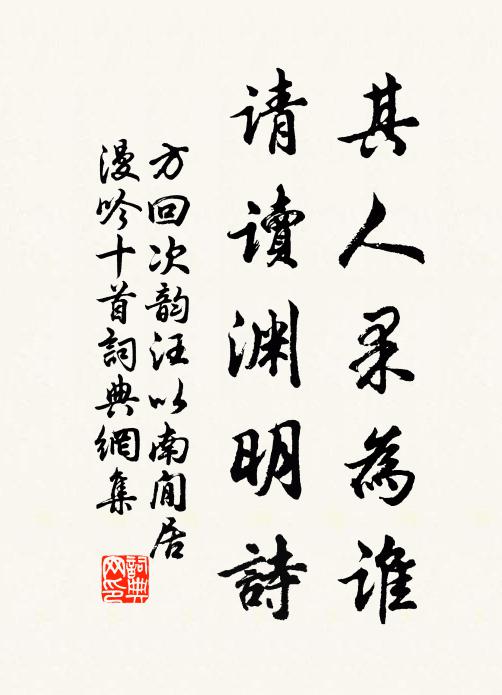 其人果為誰
请讀渊明詩
方回次韵汪以南閒居
漫吟十首詞典網集
詞典
网印